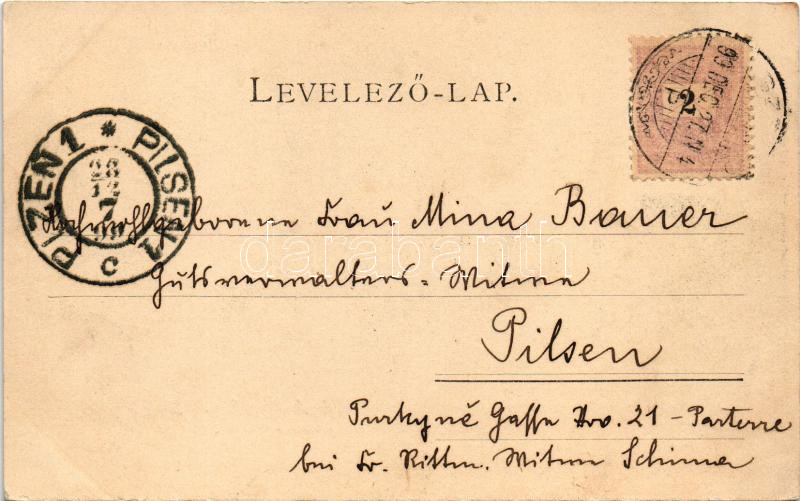 LEVELEZŐ-LAP.
2
99 DEC. 27. N 4
PLZEN 1 * PILSEN 1
28
12
7
C
Hochwohlgeborene Frau Mina Bauer
darabanth
Gutsverwalters-Witwe
Pilsen
Purkyně Gasse Nro. 21 - Parterre
bei Fr. Rittm. Witwe